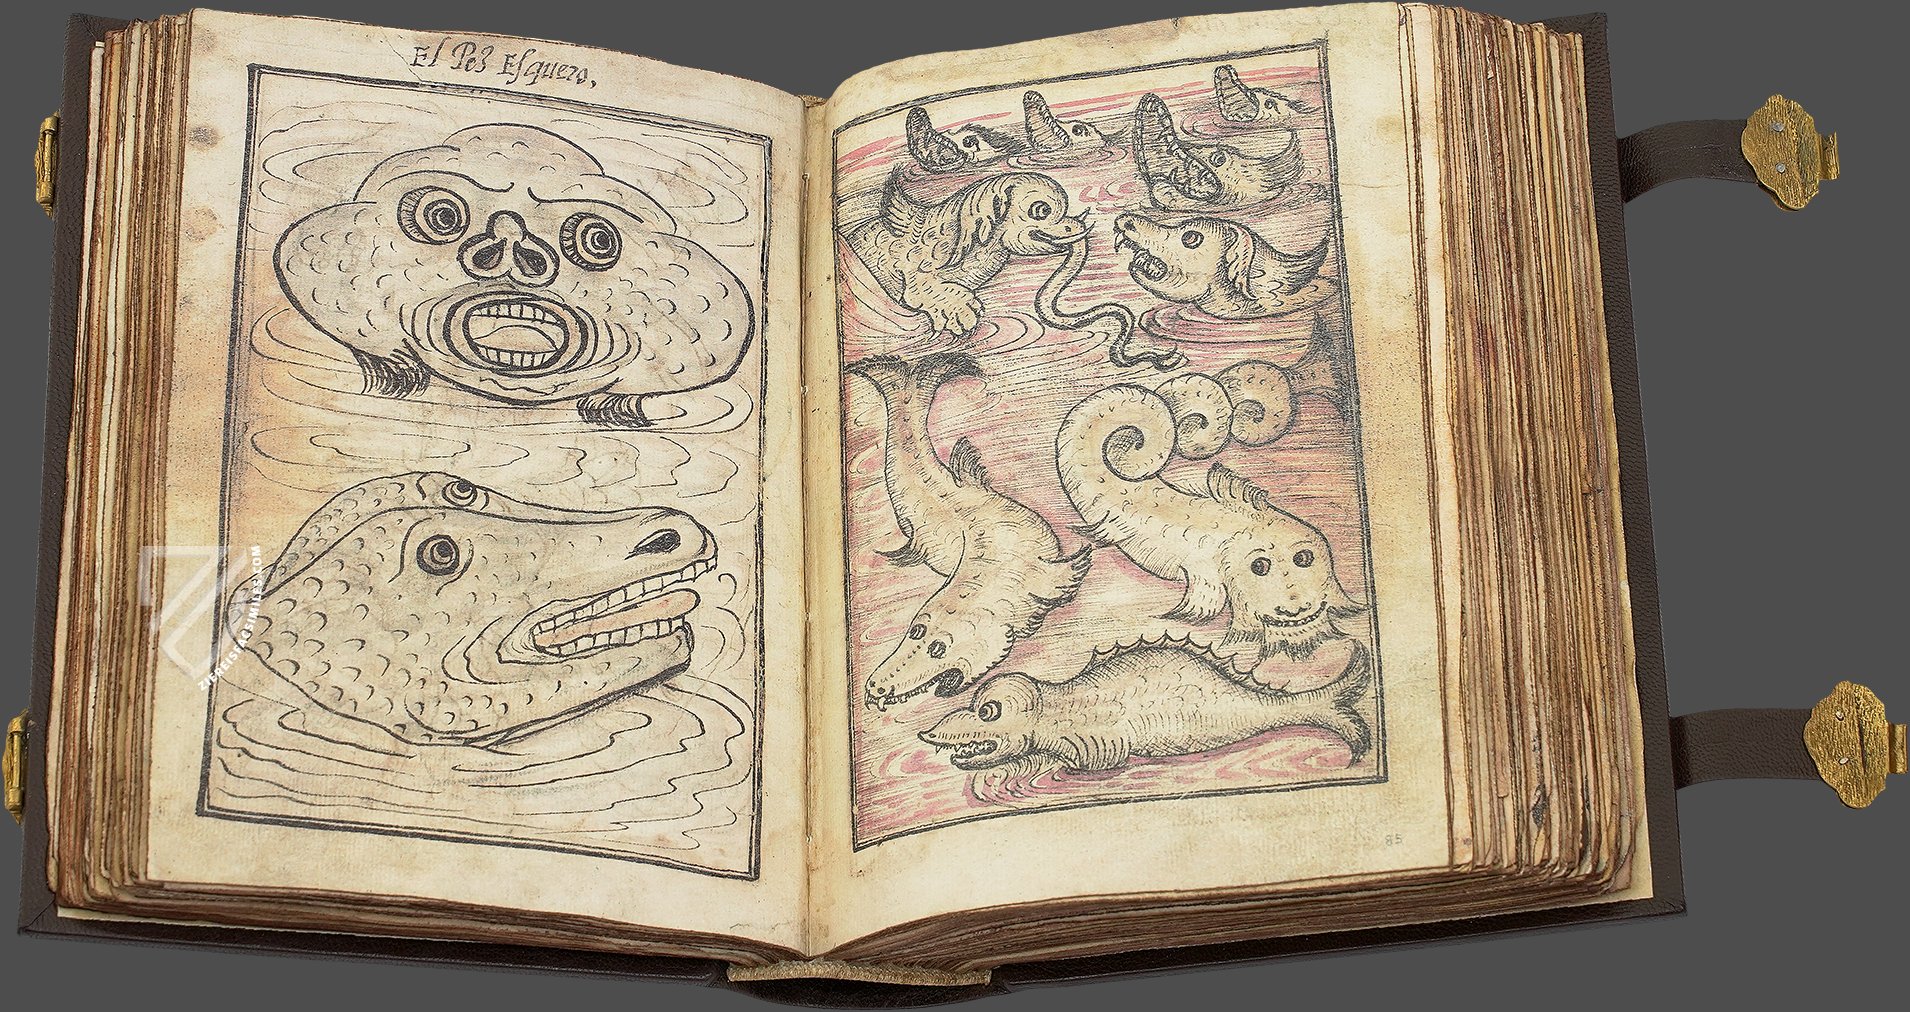 El Pes Esquero,
ZIEREISFACSIMILES.COM
85